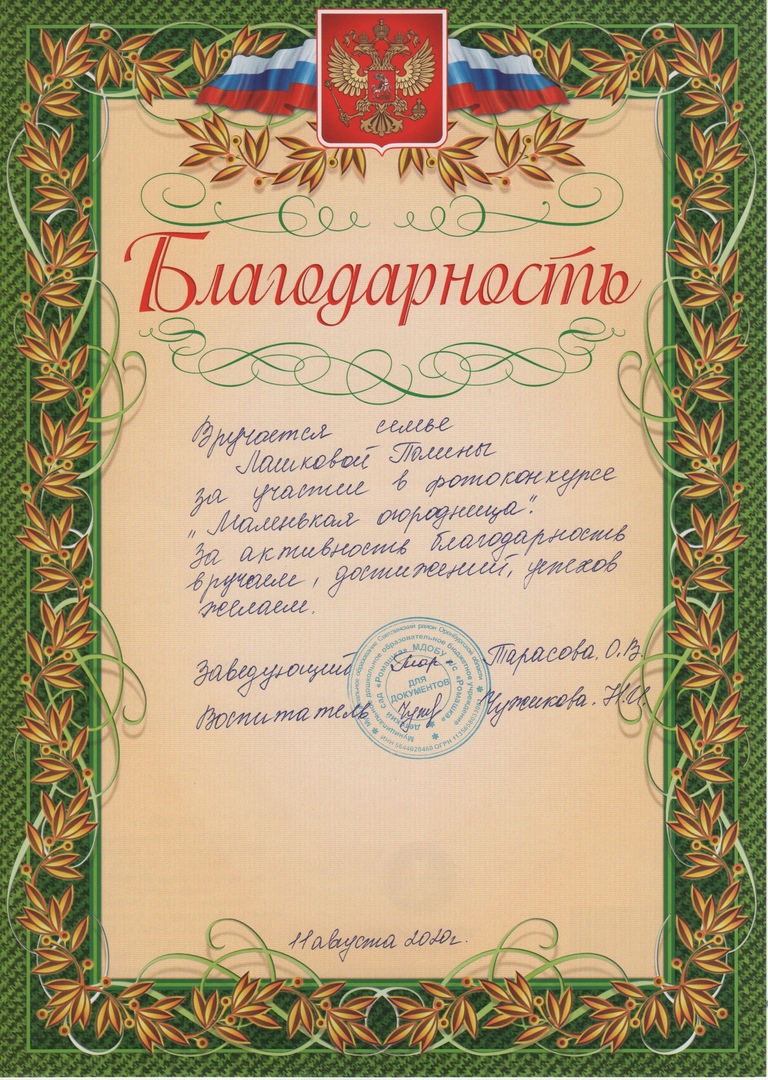 Благодарность
Вручается семье
Лашковой Полины
за участие в фотоконкурсе
"Маленькая огородница".
За активность благодарность
вручаем, достижений, успехов
желаем.
Заведующий Тарасова. О.В.
Воспитатель Чужикова. Н.И.
ДЛЯ
ДОКУМЕНТОВ
11 августа 2020г.